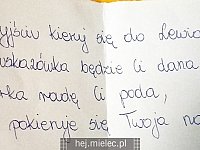 yjściu kieruj się do Lewia
wskazówka będzie Ci dana
rka radę Ci poda,
pokieruje się Twoja no
hej.mielec.pl